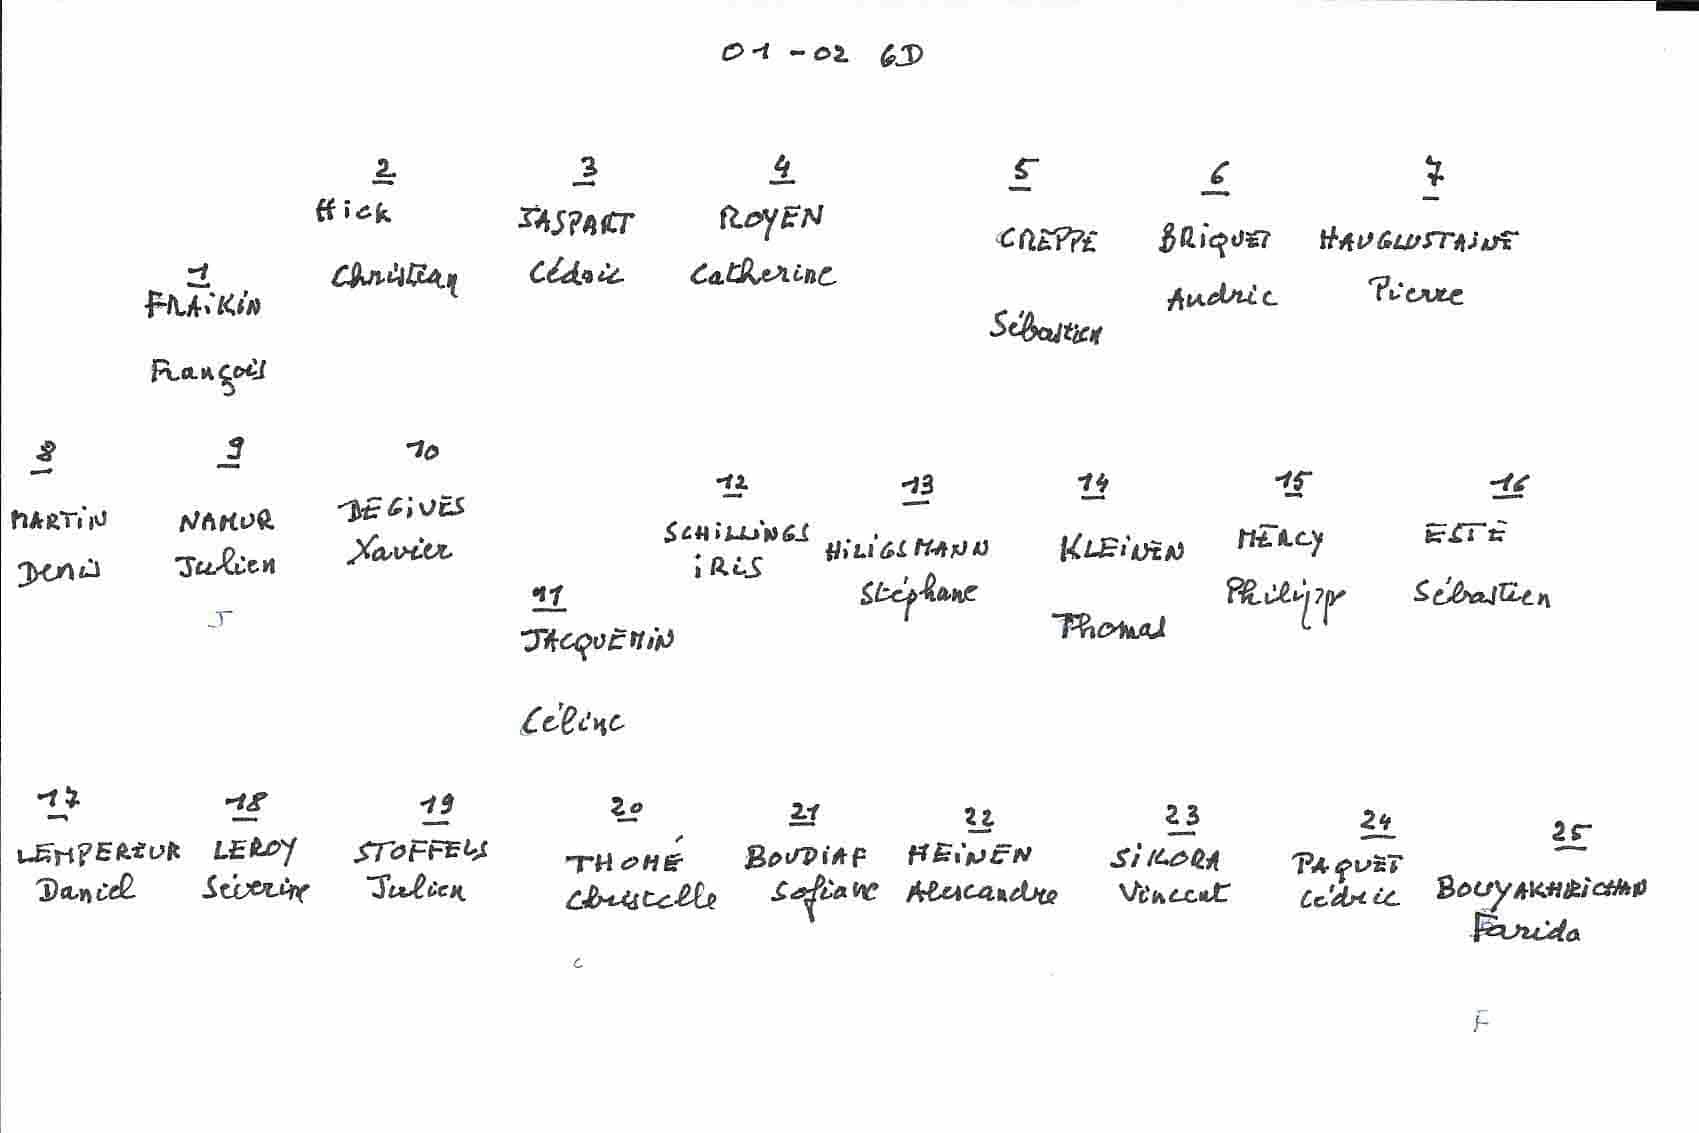 01-02 6D
1
FRAiKiN
François
2
Hick
Christian
3
JASPART
Cédric
4
ROYEN
Catherine
5
CREPPE
Sébastien
6
BRiQUET
Audric
7
HAUGLUSTAINE
Pierre
8
MARTiN
Denis
9
NAMUR
Julien
J
10
DEGiVES
Xavier
11
JACQUEMiN
Céline
12
SCHiLLiNGS
iRiS
13
HiLiGSMANN
Stéphane
14
KLEiNEN
Thomas
15
MERCY
Philipp
16
ESTÉ
Sébastien
17
LEMPEREUR
Daniel
18
LEROY
Séverine
19
STOFFELS
Julien
20
THOMÉ
Christelle
C
21
BOUDiAF
Sofiane
22
HEiNEN
Alexandre
23
SiKORA
Vincent
24
PAQUET
Cédric
25
BOUYAKHRICHAN
Farida
F